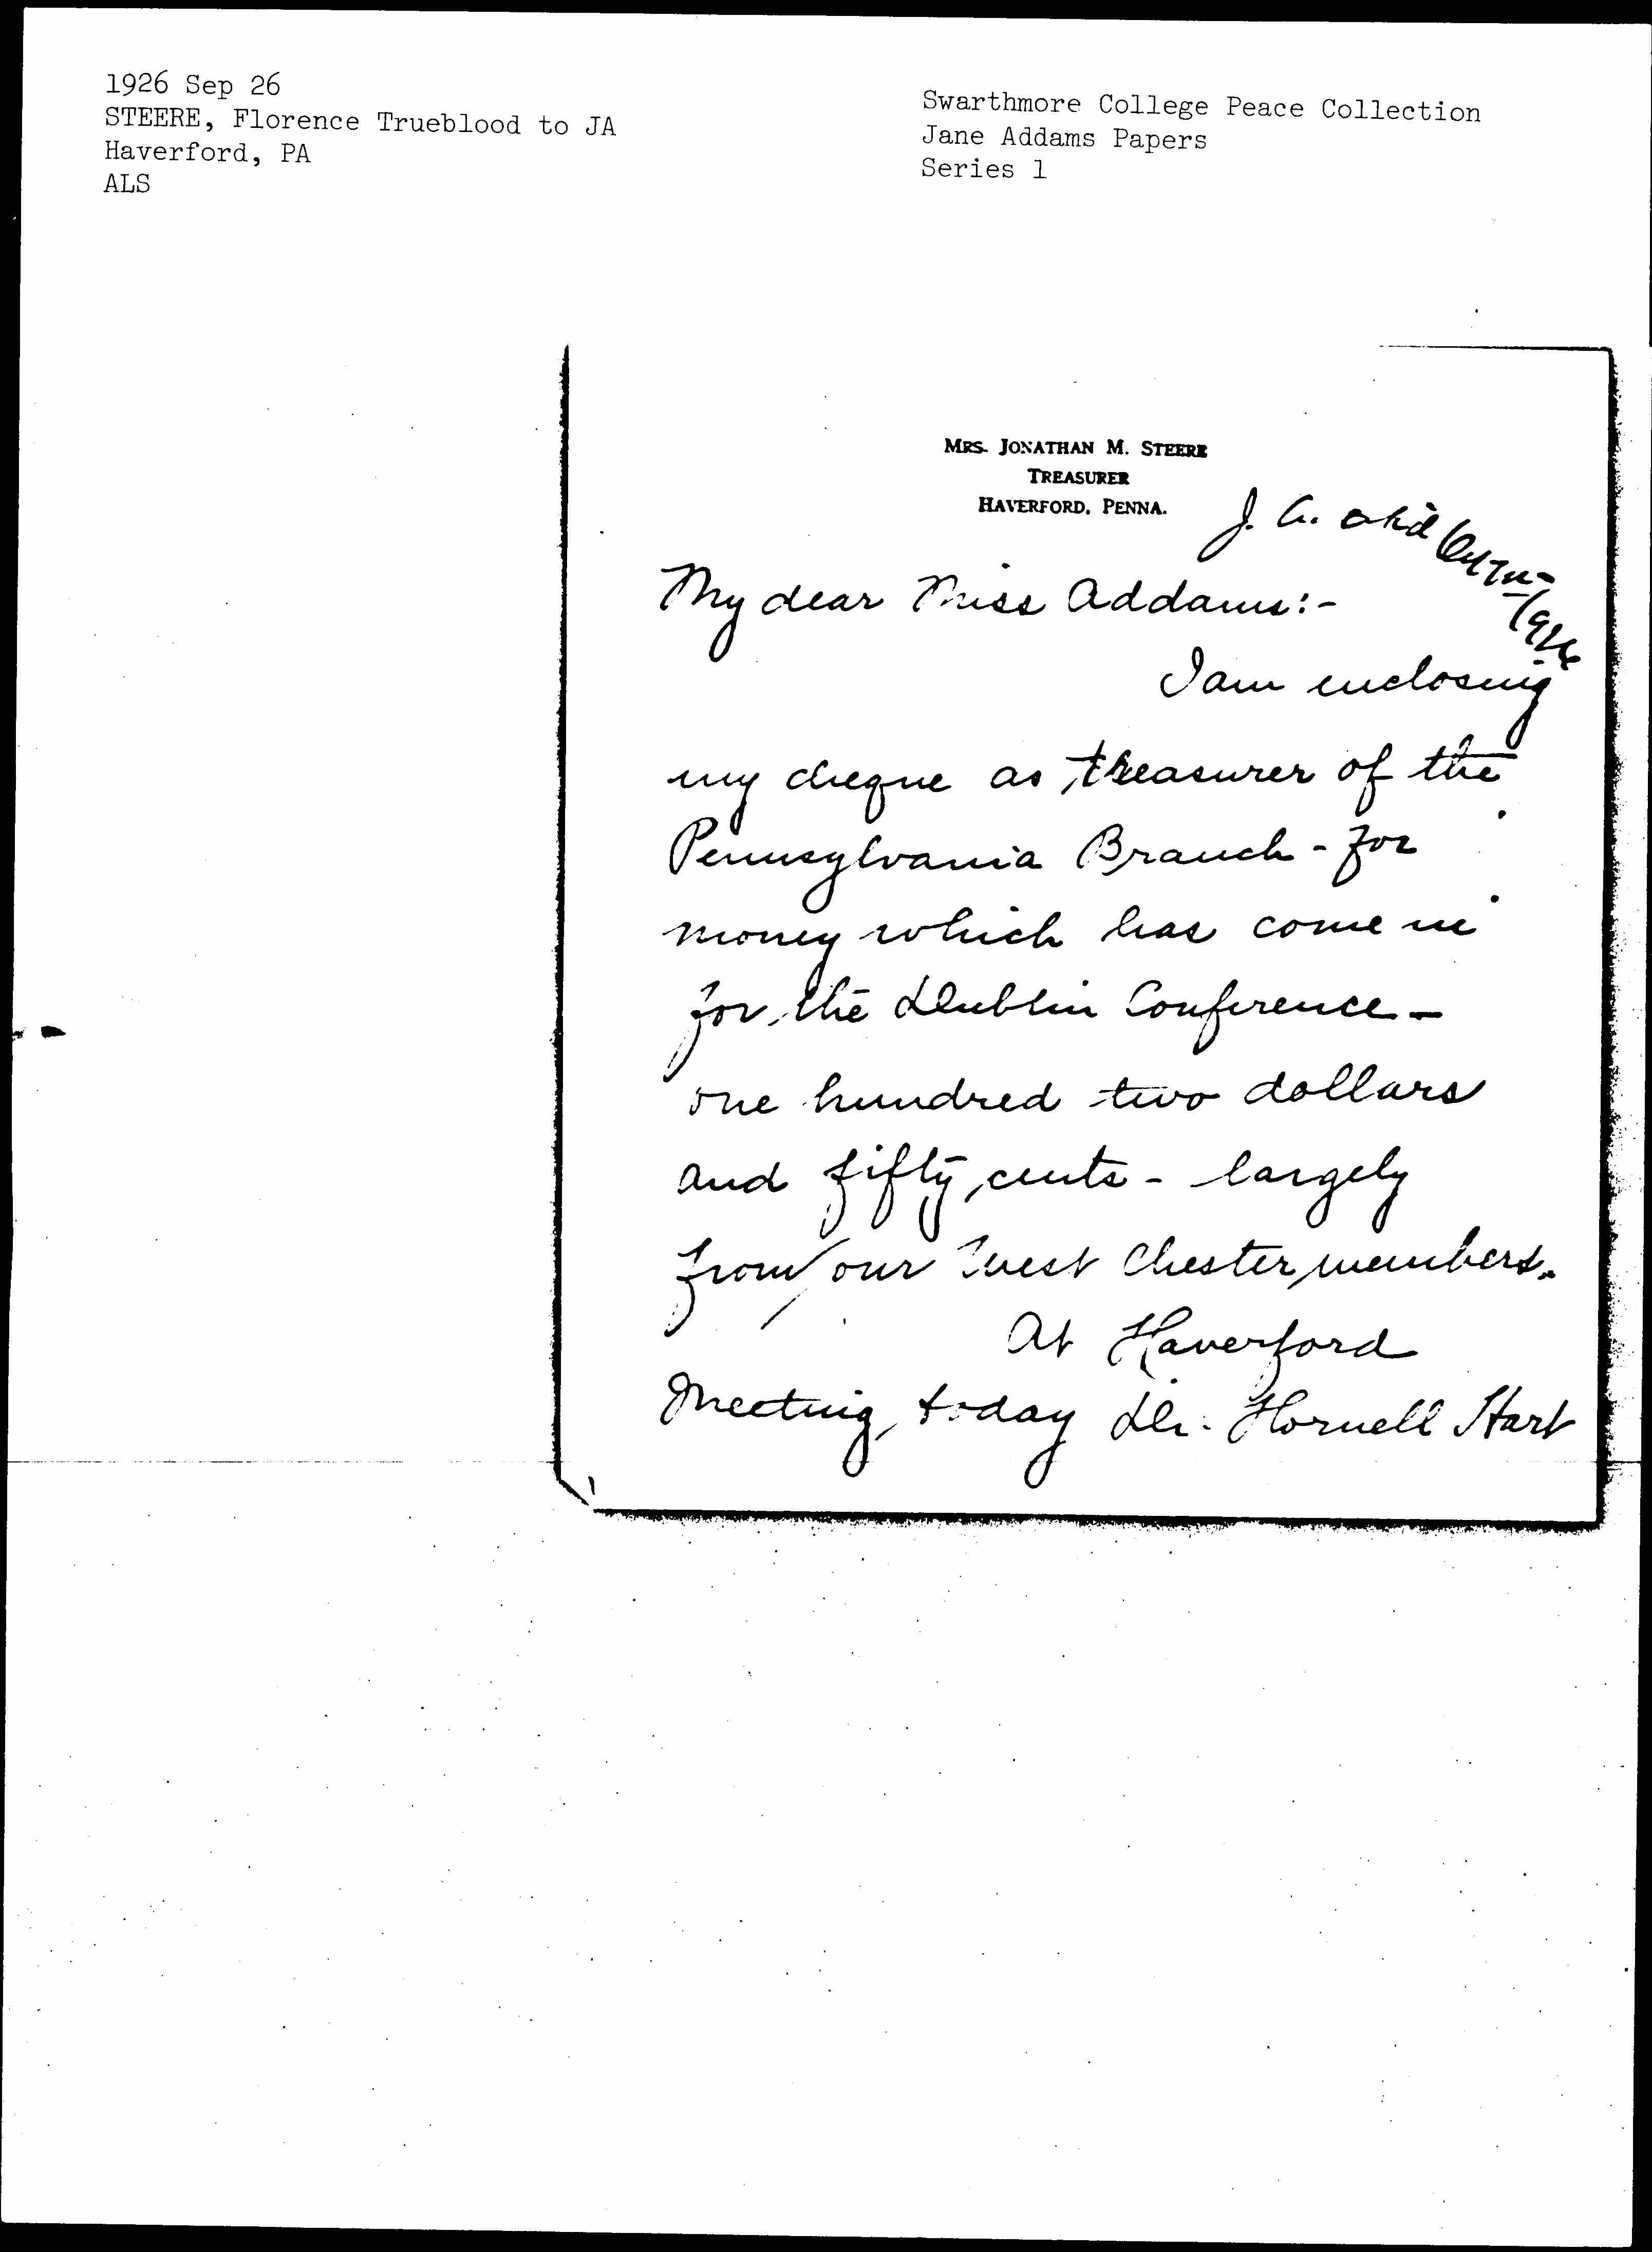 1926 Sep 26
STEERE, Florence Trueblood to JA
Haverford, PA
ALS
Swarthmore College Peace Collection
Jane Addams Papers
Series 1
MRS. JONATHAN M. STEERE
TREASURER
HAVERFORD, PENNA.
J. A. 1926
My dear Miss Addams:-
I am enclosing
my cheque as treasurer of the
Pennsylvania Branch - for
money which has come in
for the Dublin Conference -
one hundred two dollars
and fifty cents - largely
from our West Chester members.
At Haverford
Meeting today Dr. Hornell Hart